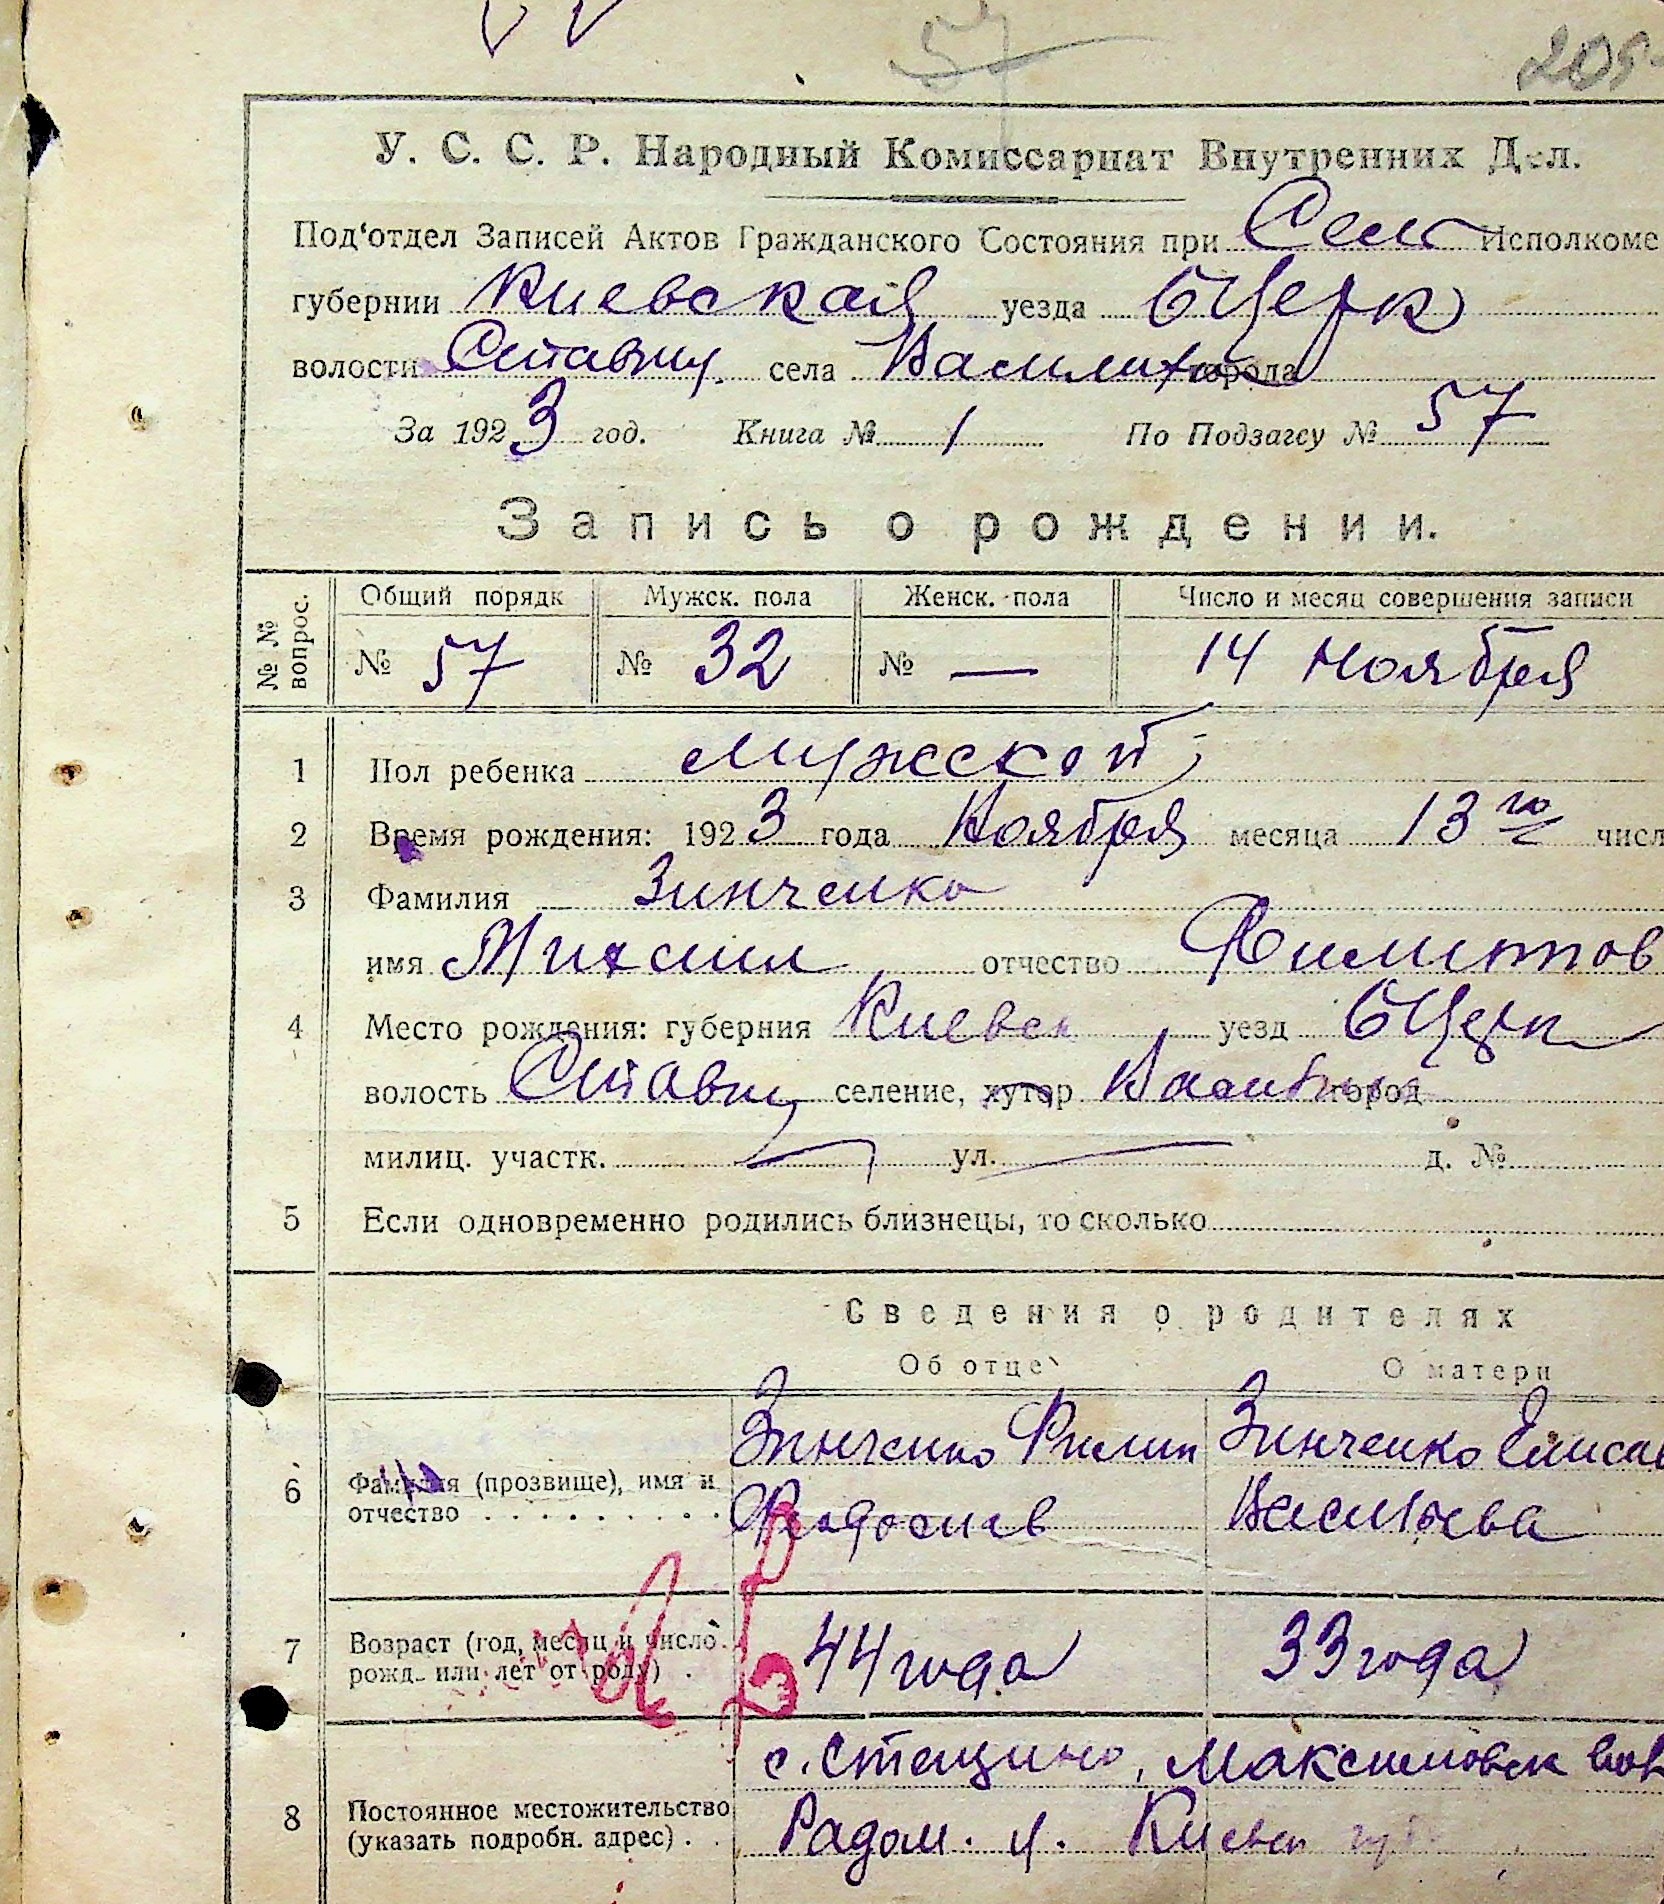 57
209
У. С. С. Р. Народный Комиссариат Внутренних Дел.
Под‘отдел Записей Актов Гражданского Состояния при Сель Исполкоме
губернии Киевская уезда БЦерк
волости Ставищ. села Василиха города
За 1923 год. Книга № 1 По Подзагсу № 57
Запись о рождении.
№ № вопрос. Общий порядк Мужск. пола Женск. пола Число и месяц совершения записи
№ 57 № 32 № — 14 Ноября
1 Пол ребенка Мужской
2 Время рождения: 1923 года Ноября месяца 13го числ
3 Фамилия Зинченко
имя Михаил отчество Филиппов
4 Место рождения: губерния Киевск уезд БЦерк
волость Ставищ селение, хутор город
милиц. участк. ул. д. №
5 Если одновременно родились близнецы, то сколько
Сведения о родителях
Об отце О матери
6 Фамилия (прозвище), имя и Зинченко Филип Зинченко Елисав
отчество . . . . . . . . . Федосиев Васильева
7 Возраст (год, месяц и число рожд. или лет от роду) . 44 года 33 года
с. Стещино, Максимовск вол
8 Постоянное местожительство (указать подробн. адрес) . . Радом. у. Киевск губ